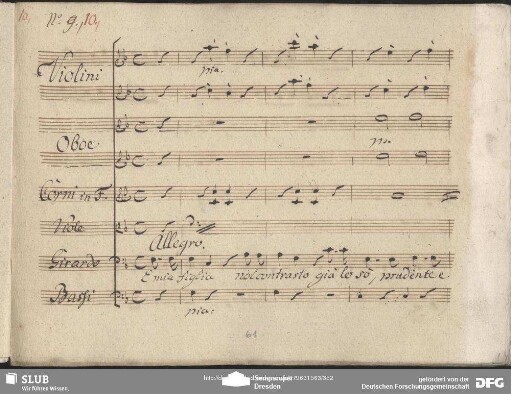 10,
No. 9. 10,
Violini
pia.
Oboe
Corni in F.
Viole
Allegro.
Girardo
E mia figlia nol contrasto già lo sò, prudente e
Bassi
pia:
SLUB
Wir führen Wissen.
Dresden
gefördert von der
Deutschen Forschungsgemeinschaft
DFG